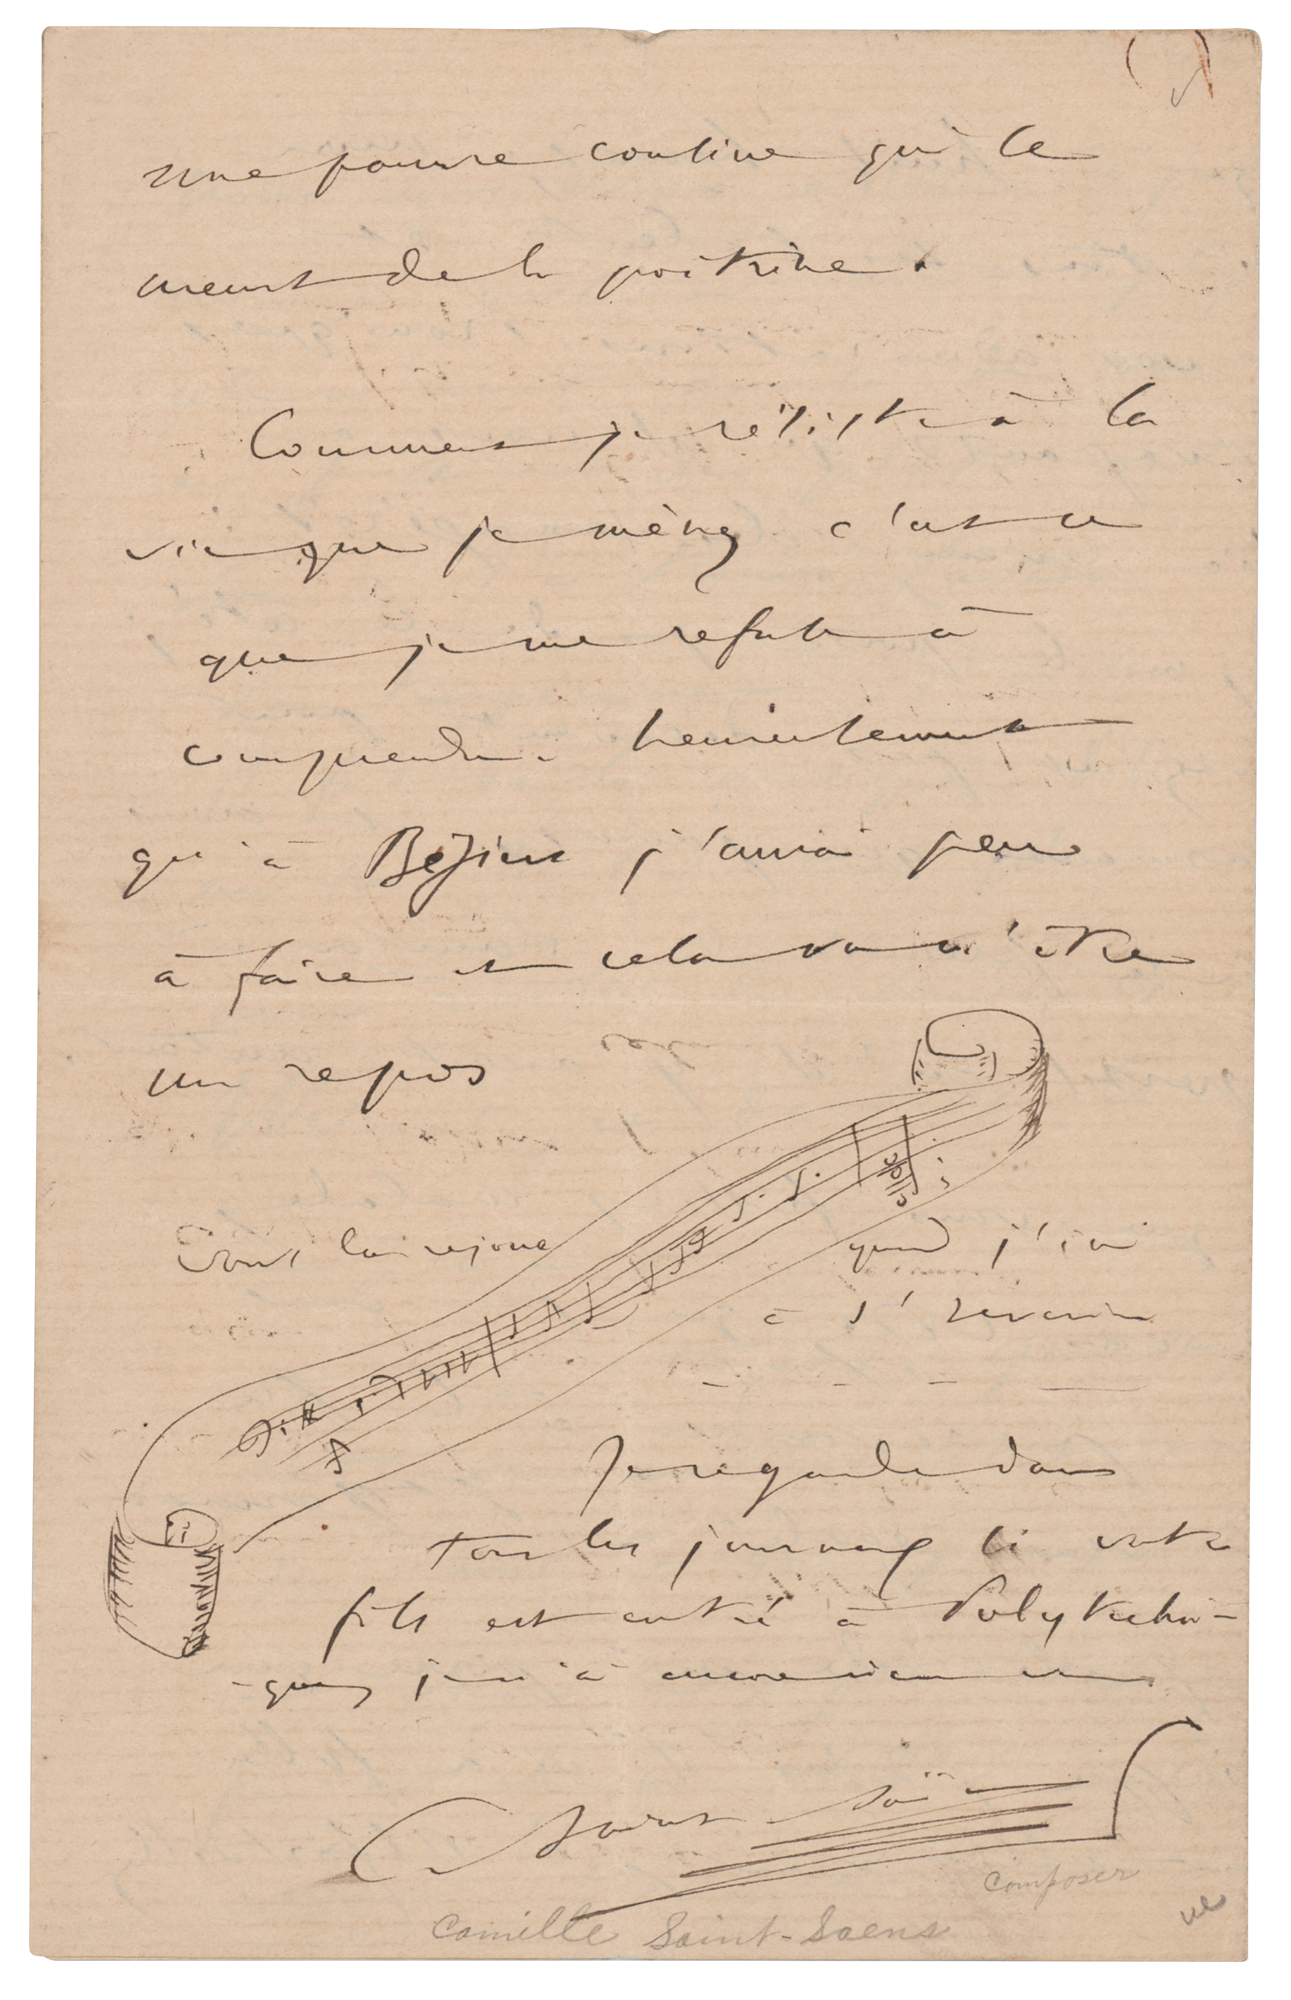 une pauvre cousine qui se
meurt de la poitrine.
Comment je résiste à la
vie que je mène, c'est ce
que je me refuse à
comprendre. heureusement
qu'à Béziers j'aurai peu
à faire et cela va m'être
un repos
Vous la rejoue
quand j'irai
à St
Je regarde dans
tous les journaux si votre
fils est entré à Polytechni-
-que, je n'ai encore rien vu
Saint-Saëns
composer
Camille Saint-Saens